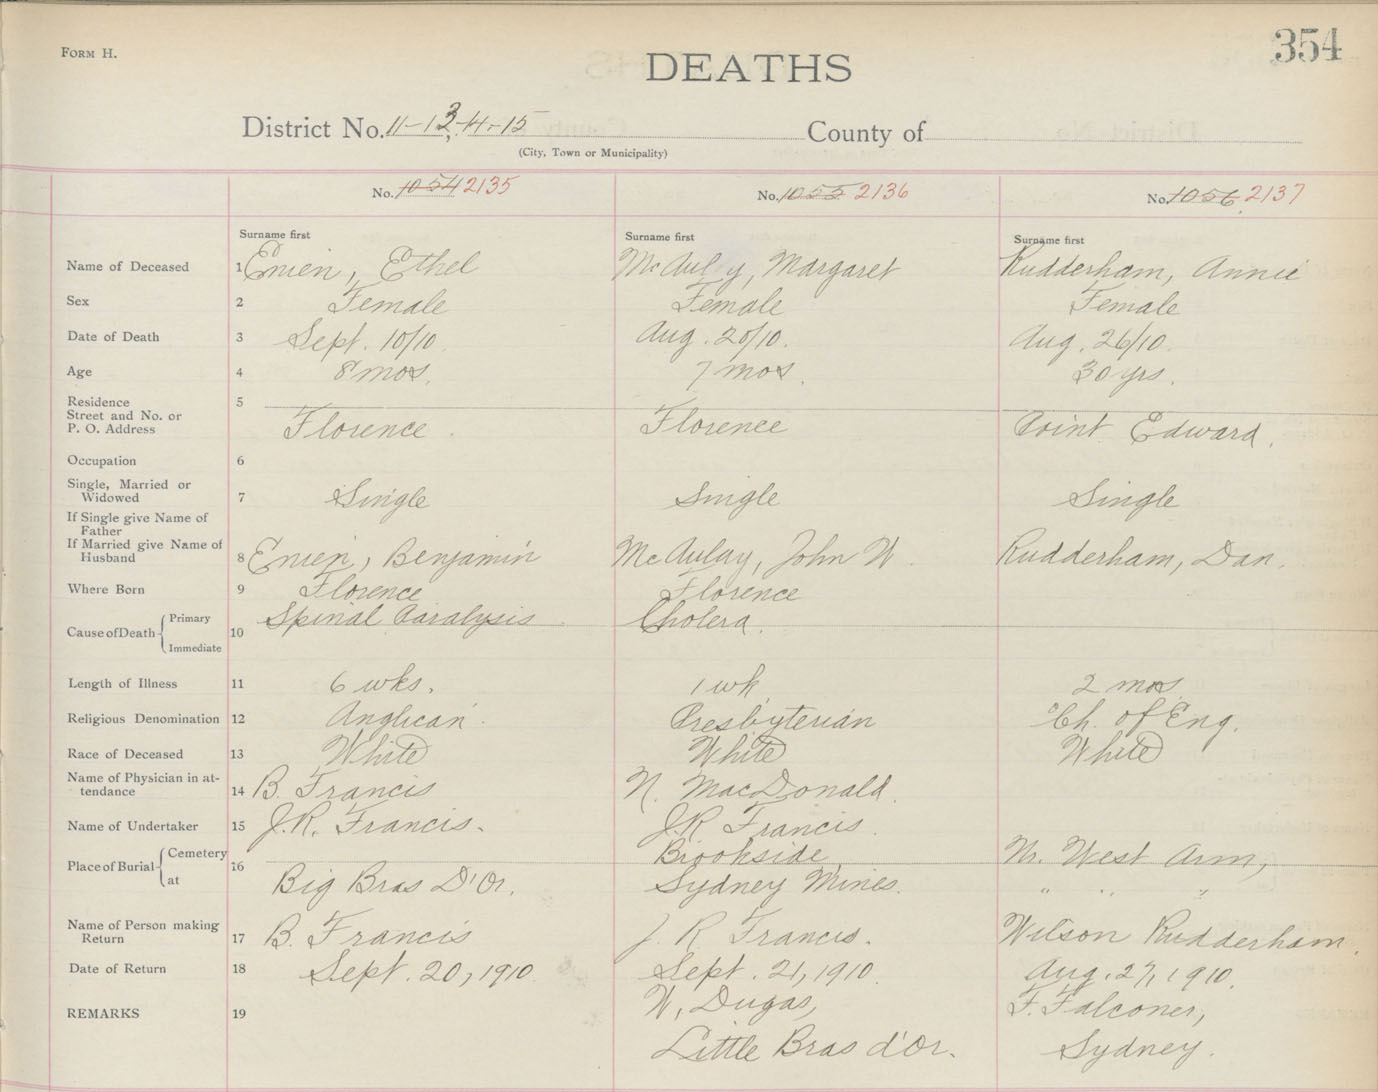 354
FORM H.
DEATHS
District No. 11-13,-14-15 County of
(City, Town or Municipality)
No. 1054 2135 No. 1055 2136 No. 1056 2137
Surname first Surname first Surname first
Name of Deceased 1 Enien, Ethel McAuly, Margaret Rudderham, Annie
Sex 2 Female Female Female
Date of Death 3 Sept. 10/10. Aug. 20/10. Aug. 26/10.
Age 4 8 mos. 7 mos. 30 yrs.
Residence 5
Street and No. or
P. O. Address Florence. Florence Point Edward.
Occupation 6
Single, Married or
Widowed 7 Single Single Single
If Single give Name of
Father
If Married give Name of
Husband 8 Enien, Benjamin McAulay, John W. Rudderham, Dan.
Where Born 9 Florence Florence
Cause of Death Primary 10 Spinal Paralysis Cholera.
Immediate
Length of Illness 11 6 wks. 1 wk. 2 mos.
Religious Denomination 12 Anglican. Presbyterian Ch. of Eng.
Race of Deceased 13 White White White
Name of Physician in at-
tendance 14 B. Francis N. MacDonald.
Name of Undertaker 15 J.R. Francis. J.R Francis.
Place of Burial Cemetery 16 Brookside, Nr. West Arm,
at Big Bras D'Or. Sydney Mines. " " "
Name of Person making
Return 17 B. Francis J. R Francis. Wilson Rudderham.
Date of Return 18 Sept. 20, 1910 Sept. 21, 1910. Aug. 27, 1910.
REMARKS 19 W, Dugas, F. Falconer,
Little Bras d'Or. Sydney.